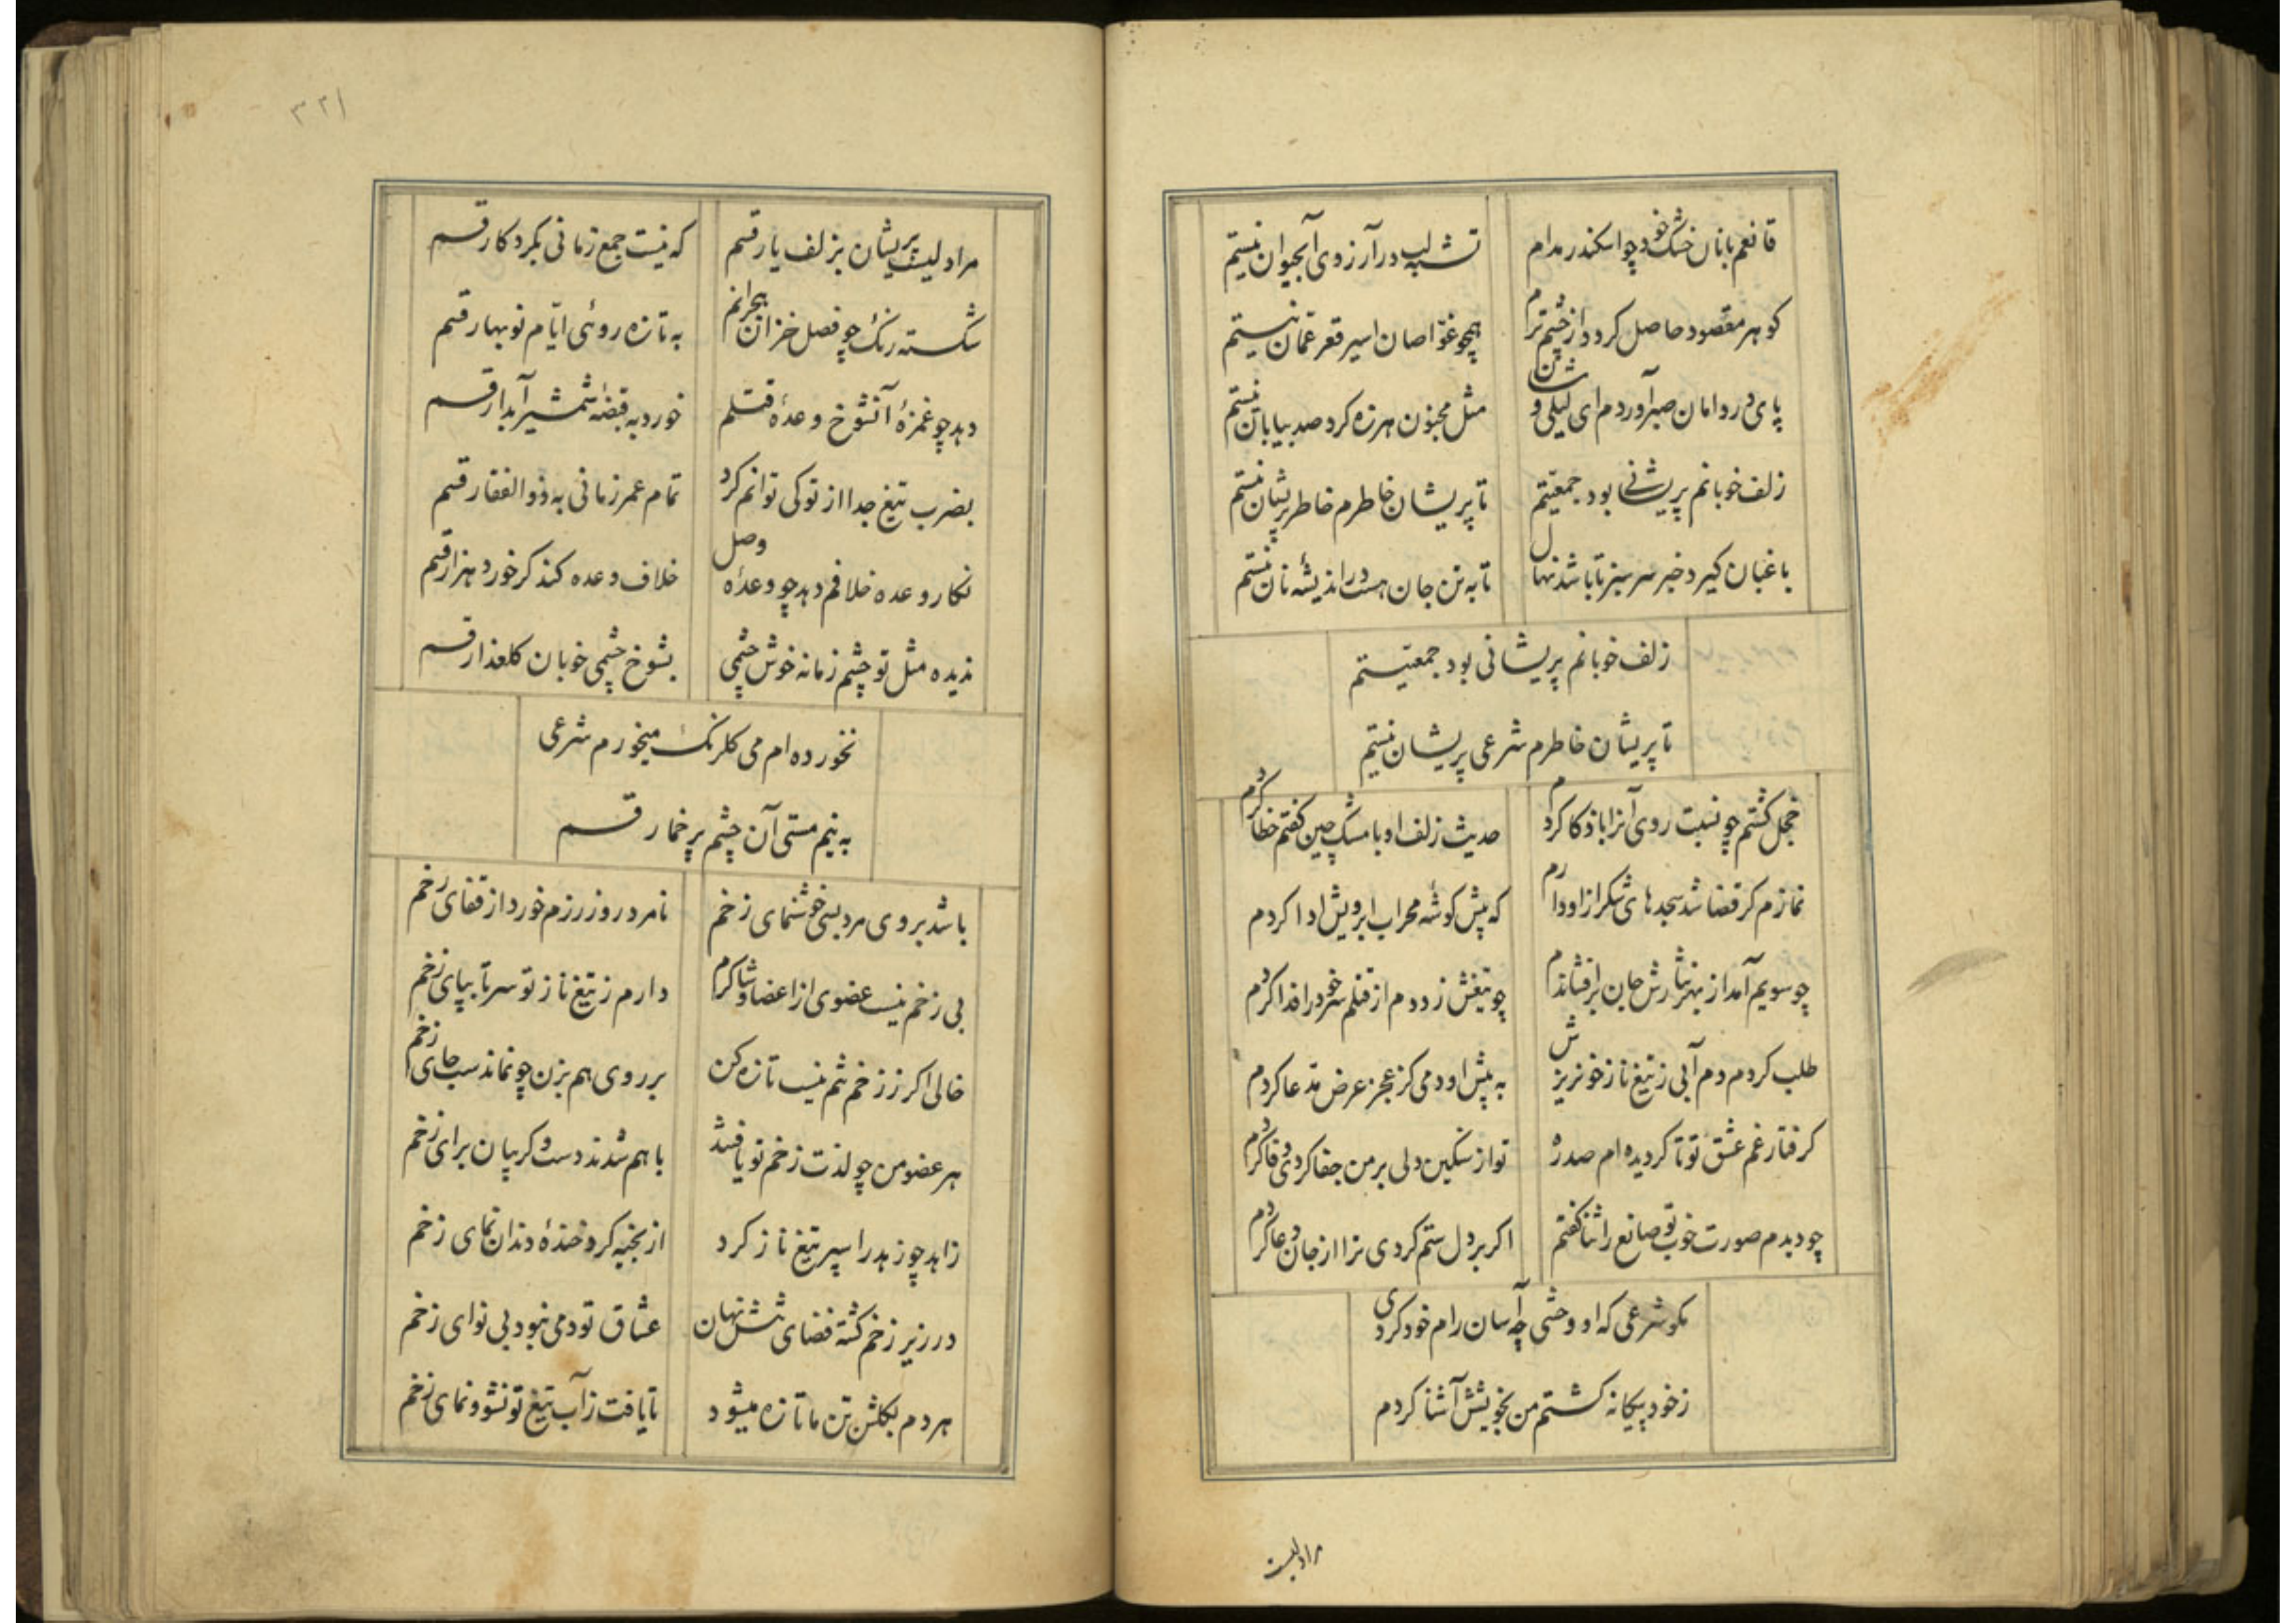 قانعم بانان خشک خود چو اسکندر مدام
تشنه لب در آرزوی آبحیوان نیستم
کوهر مقصود حاصل کردد از چشم ترم
همچو غوّاصان اسیر قعر عمّان نیستم
پای در دامان صبر آوردم ای لیلی وشان
مثل مجنون هرزه کرد صد بیابان نیستم
زلف خوبانم پریشانی بود جمعیّتم
تا پریشان خاطرم خاطر پریشان نیستم
باغبان کیرد خبر سرسبز تا باشد نهال
تا به تن جان هست در اندیشه نان نیستم
زلف خوبانم پریشانی بود جمعیّتم
تا پریشان خاطرم شرعی پریشان نیستم
خجل کشتم چو نسبت روی آنرا باذکا کردم
حدیث زلف او با مشک چین کفتم خطا کردم
نمازم کر قضا شد سجدهای شکر ازاو دارم
که پیش کوشهٔ محراب ابرویش ادا کردم
چو سویم آمد از بهر نثارش جان برافشاندم
چو تیغش زد دم از قتلم سر خود را فدا کردم
طلب کردم دم آبی ز تیغ ناز خونریزش
به پیش او دمی کز عجز عرض مدّعا کردم
کرفتار غم عشق تو تا کردیده ام صدره
تو از سنکین دلی بر من جفا کردی وفا کردم
چو دیدم صورت خوب تو صانع را ثنا کفتم
اکر بر دل ستم کردی ترا از جان دعا کردم
مکو شرعی که او وحشی چه آسان رام خود کردی
ز خود بیکانه کشتم من بخویشش آشنا کردم
مرادلیست
۳۲۱
مرا دلیست پریشان بزلف یار قسم
که نیست جمع زمانی بکردکار قسم
شکسته رنک چو فصل خزان ز هجرانم
به تازه روئی ایّام نوبهار قسم
دهد چو غمزهٔ آنشوخ وعدهٔ قتلم
خورد به قبضهٔ شمشیر آبدار قسم
بضرب تیغ جدا از تو کی توانم کرد
تمام عمر زمانی به ذوالفقار قسم
نکار وعده خلافم دهد چو وعدهٔ وصل
خلاف وعده کند کر خورد هزار قسم
ندیده مثل تو چشم زمانه خوش چشمی
بشوخ چشمی خوبان کلعذار قسم
نخورده ام می کلرنک میخورم شرعی
به نیم مستی آن چشم پر خمار قسم
باشد بروی مرد بسی خوشنمای زخم
نامرد روز رزم خورد از قفای زخم
بی زخم نیست عضوی از اعضا و شاکرم
دارم ز تیغ ناز تو سر تا بپای زخم
خالی اکر ز زخم شم نیست تازه کن
بر روی هم بزن چو نماندست جای زخم
هر عضو من چو لذت زخم تو یافتند
با هم شدند دست و کریبان برای زخم
زاهد چو زهد را سپر تیغ ناز کرد
از بخیه کرد خندهٔ دندان نمای زخم
در زیر زخم کشته فضای تنش نهان
عشاق تو دمی نبود بی نوای زخم
هر دم بکلشن تن ما تازه میشود
تا یافت ز آب تیغ تو نشو و نمای زخم